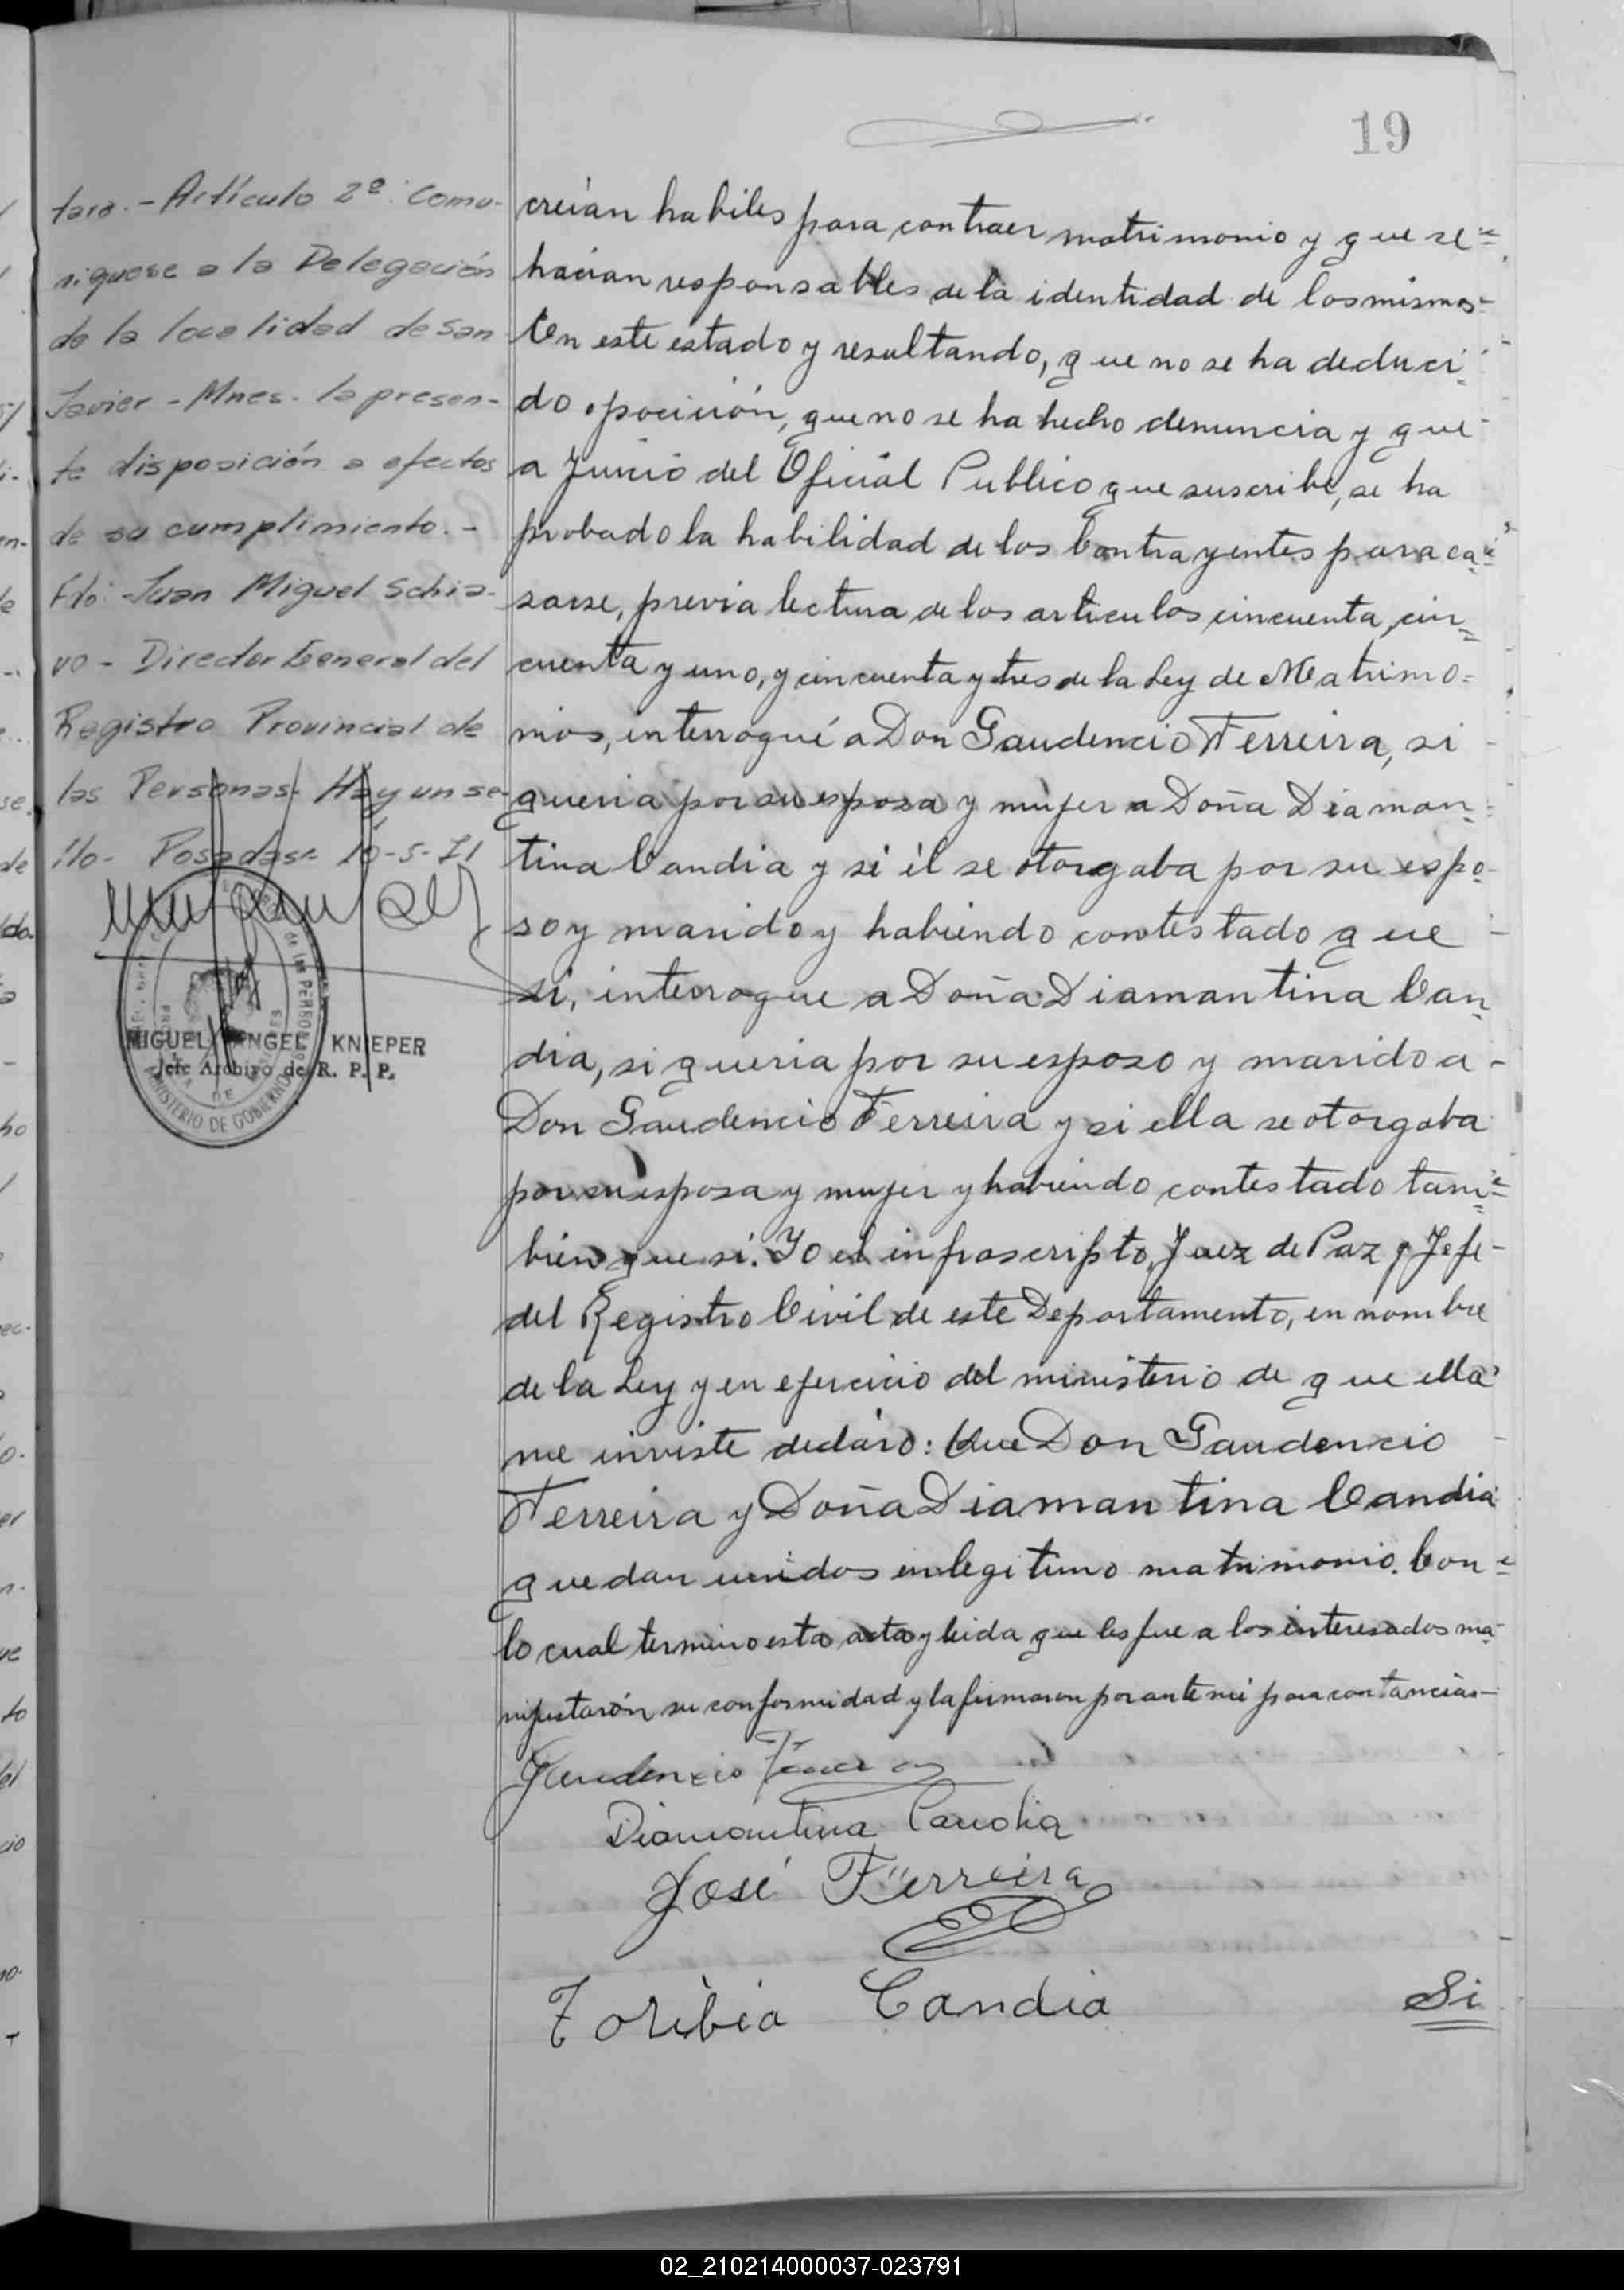 19
tara. - Artículo 2º: Comu-
níquese a la Delegación
de la localidad de San
Javier - Mnes. la presen-
te disposición a efectos
de su cumplimiento. -
Fdo: Juan Miguel Schia-
vo - Director General del
Registro Provincial de
las Personas - Hay un se-
llo - Posadas 10-5-71
MIGUEL ANGEL KNIEPER
Jefe Archivo de R. P. P.
MINISTERIO DE GOBIERNO
creian habiles para contraer matrimonio y que se=
hacian responsables de la identidad de los mismos-
En este estado y resultando, que no se ha deduci-
do oposición, que no se ha hecho denuncia y que
a Junio del Oficial Publico que suscribe, se ha
probado la habilidad de los Contrayentes para ca=
sarse, previa lectura de los articulos cincuenta, cin=
cuenta y uno, y cincuenta y tres de la Ley de Matrimo=
nios, interrogué a Don Gaudencio Ferreira, si
queria por su esposa y mujer a Doña Diaman=
tina Candia y si él se otorgaba por su espo-
so y marido y habiendo contestado que
si, interrogue a Doña Diamantina Can=
dia, si queria por su esposo y marido a -
Don Gaudencio Ferreira y si ella se otorgaba
por su esposa y mujer y habiendo contestado tam=
bien que si. Yo el infrascripto, Juez de Paz y Jefe-
del Registro Civil de este Departamento, en nombre
de la Ley y en ejercicio del ministerio de que ella
me inviste declaro: Que Don Gaudencio
Ferreira y Doña Diamantina Candia
quedan unidos en legitimo matrimonio. Con=
lo cual termino esta acta y leida que les fue a los interesados ma-
nifestarón su conformidad y la firmaron por ante mi para contancias-
Gaudencio Ferreira
Diamantina Candia
José Ferreira
Toribia Candia
Si
02_210214000037-023791